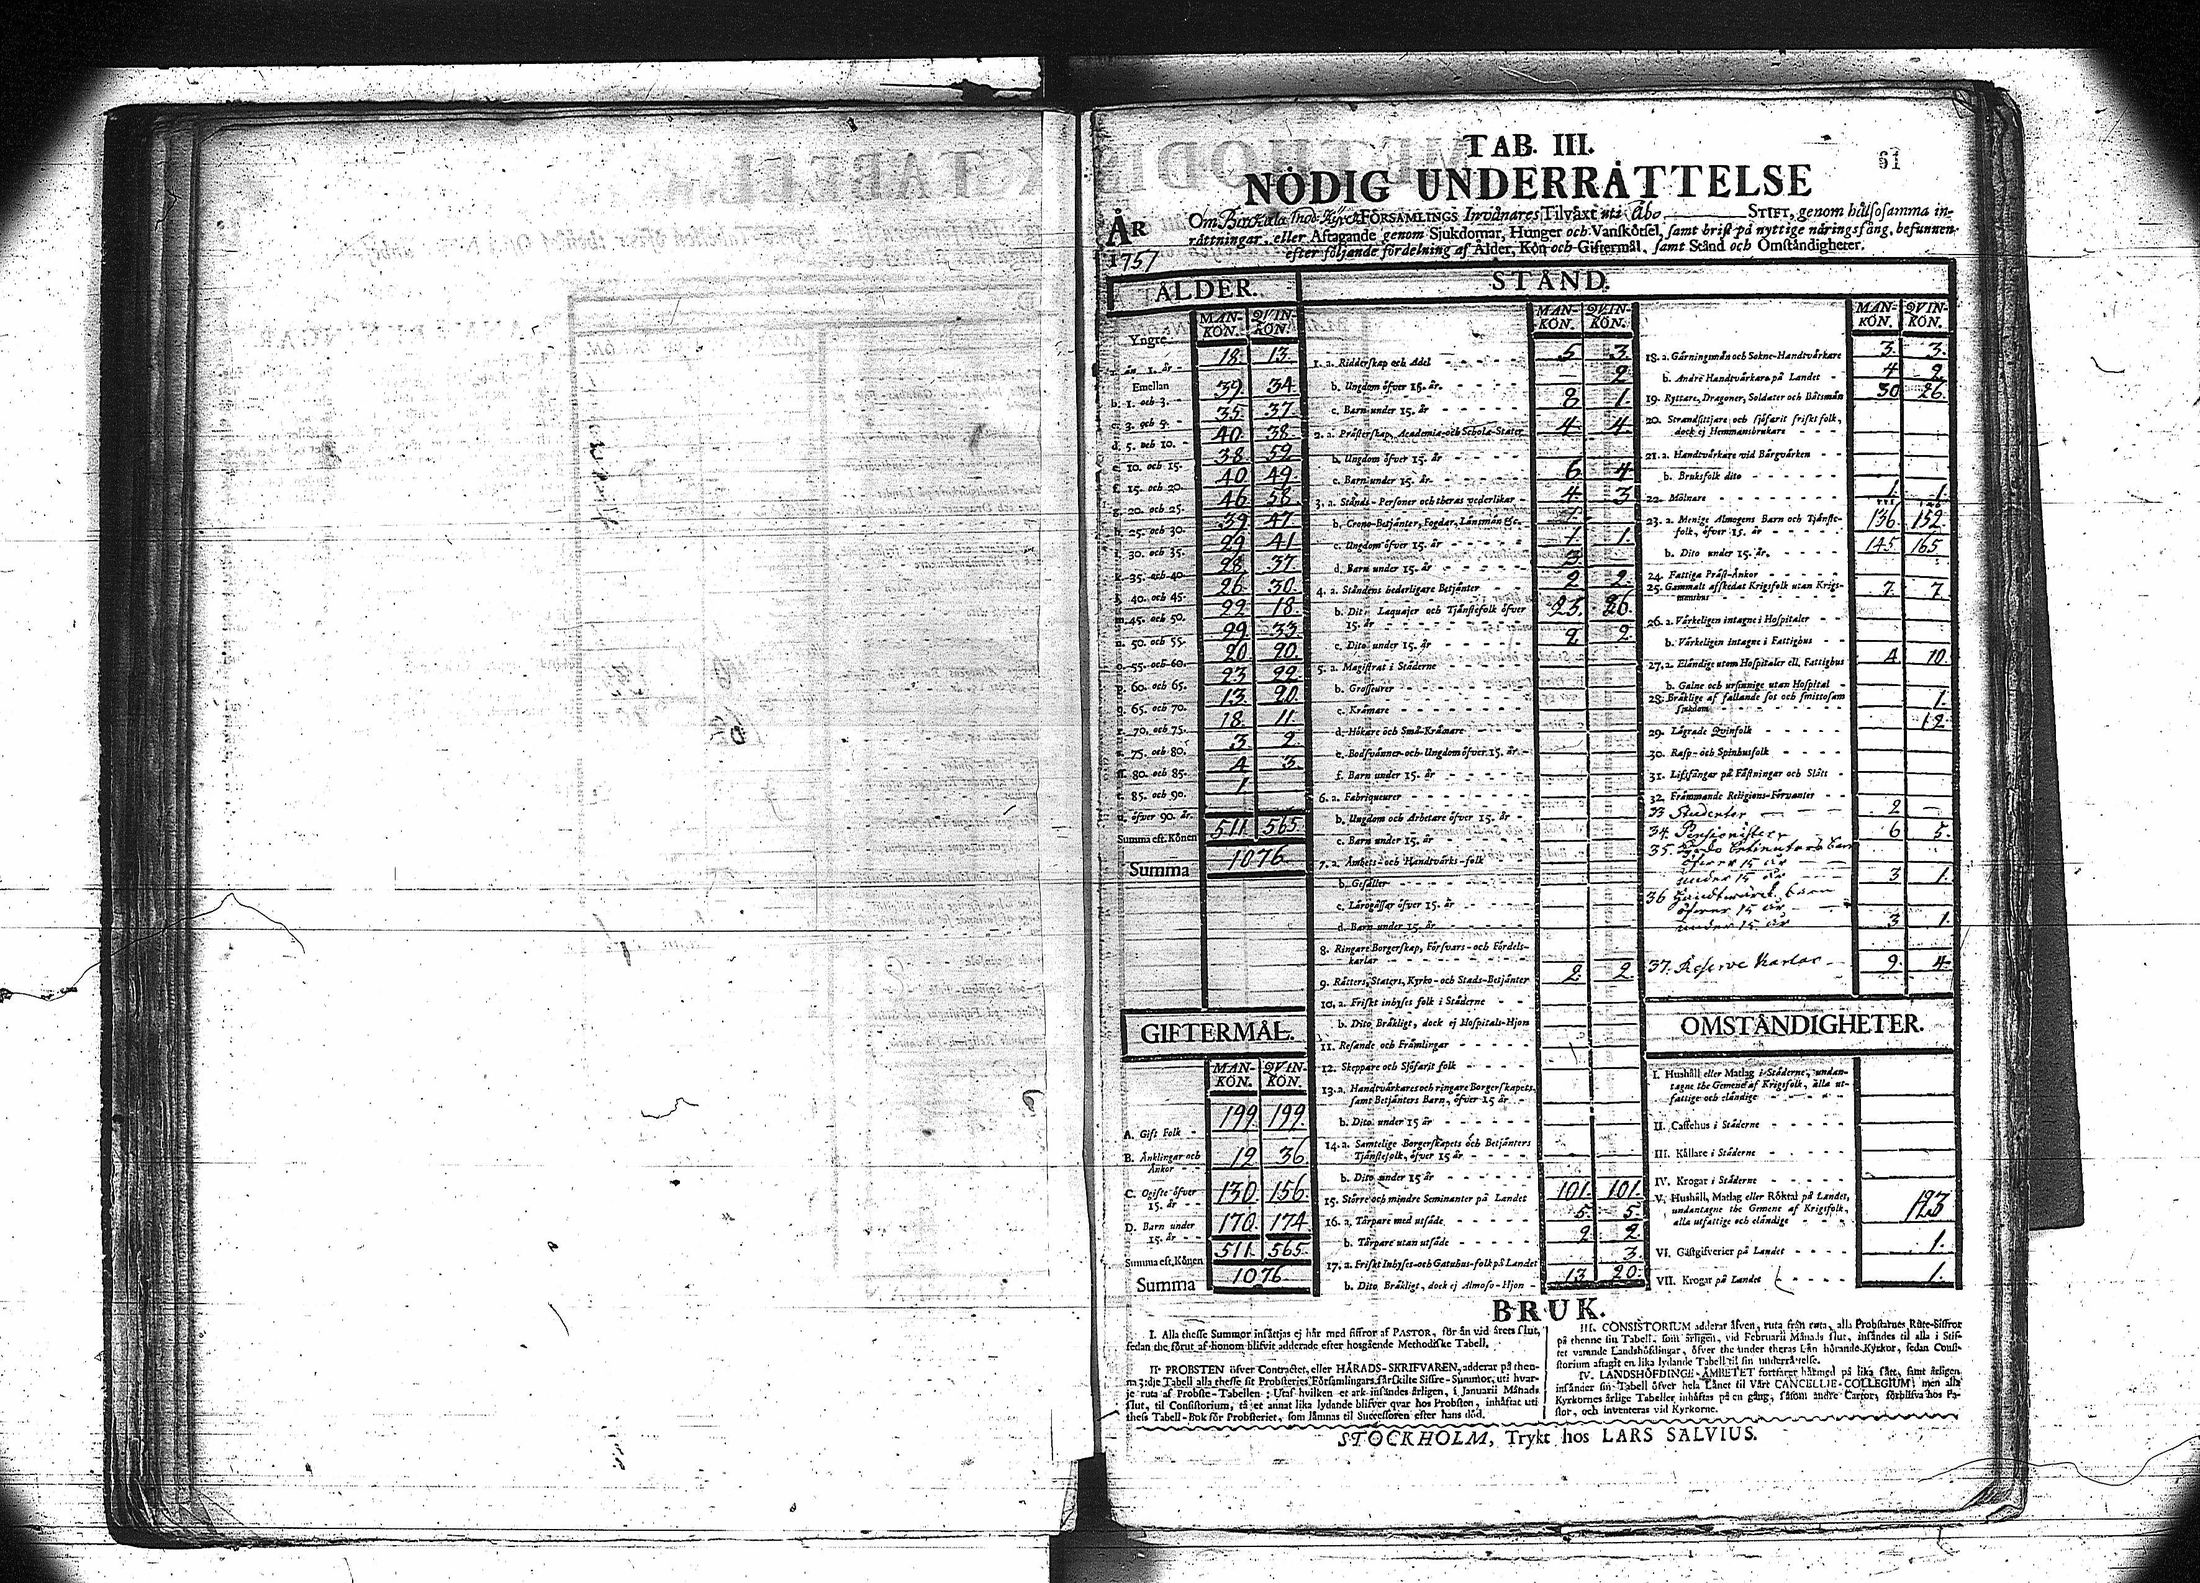 TAB. III.
61
NÖDIG UNDERRÄTTELSE
ÅR 1757
Om FÖRSAMLINGS Invånares Tilväxt uti Åbo STIFT, genom hälsosamma in-
rättningar, eller Aftagande genom Sjukdomar, Hunger och Vanskötsel, samt brist på nyttige näringsfång, befunnen
efter följande fördelning af Ålder, Kön och Giftermål, samt Stånd och Omständigheter.
ÅLDER.
MAN-KÖN. QVIN-KÖN.
Yngre
än 1. år - 18 13
Emellan
b. 1. och 3. 39 34
c. 3. och 5. 35 37
d. 5. och 10. 40 38
e. 10. och 15. 38 52
f. 15. och 20. 40 49
g. 20. och 25. 46 58
25. och 30. 39 47
30. och 35. 29 41
35. och 40. 28 37
40. och 45. 26 30
m. 45. och 50. 22 18
n. 50. och 55. 29 33
o. 55. och 60. 20 20
p. 60. och 65. 23 22
q. 65. och 70. 13 20
r. 70. och 75. 18 11
75. och 80. 3 2
80. och 85. 4 3
t. 85. och 90. 1
u. öfver 90. år.
Summa eft. Könen 511 565
Summa 1076
GIFTERMÅL.
MAN-KÖN. QVIN-KÖN.
A. Gift Folk - 199 199
B. Änklingar och
Änkor 12 36
C. Ogifte öfver
15. år 130 156
D. Barn under
15. år 170 174
Summa eft. Könen 511 565
Summa 1076
STÅND.
MAN-KÖN. QVIN-KÖN.
1. a. Ridderskap och Adel 5 3
b. Ungdom öfver 15. år. 2
c. Barn under 15. år 8 1
2. a. Prästerskap, Academiæ- och Schole-Stater 4 4
b. Ungdom öfver 15. år
c. Barn under 15. år 6 4
3. a. Stånds-Personer och theras vederlikar 4 3
b. Crono-Betjänter, Fogdar, Länsmän &c. 1
c. Ungdom öfver 15. år 1 1
d. Barn under 15. år 3
4. a. Ståndens hederligare Betjänter 2 2
b. Dito Laquajer och Tjänstefolk öfver
15. år 25 26
c. Dito under 15. år 2 2
5. a. Magistrat i Städerne
b. Grosseurer
c. Krämare
d. Hökare och Små-Krämare
e. Bodsvänner och Ungdom öfver 15. år
f. Barn under 15. år
6. a. Fabriqueurer
b. Ungdom och Arbetare öfver 15. år
c. Barn under 15. år
7. a. Ämbets- och Handtvärks-folk
b. Gesäller
c. Lärogåssar öfver 15. år
d. Barn under 15. år
8. Ringare Borgerskap, Försvars- och Fördels-
karlar
9. Rätters, Staters, Kyrko- och Stads-Betjänter 2 2
10. a. Friskt inhyses folk i Städerne
b. Dito Bräkligt, dock ej Hospitals-Hjon
11. Resande och Främlingar
12. Skeppare och Sjöfarit folk
13. a. Handtvärkares och ringare Borgerskapets,
samt Betjänters Barn, öfver 15 år
b. Dito under 15 år
14. a. Samtelige Borgerskapets och Betjänters
Tjänstefolk, öfver 15 år
b. Dito under 15 år
15. Större och mindre Seminanter på Landet 101 101
16. a. Torpare med utsäde 5 5
b. Torpare utan utsäde 2 2
17. a. Friskt Inhyses- och Gatuhus-folk på Landet 3
b. Dito Bräkligt, dock ej Almoso-Hjon 13 20
MAN-KÖN. QVIN-KÖN.
18. a. Gärningsmän och Sokne-Handtvärkare 3 3
b. Andre Handtvärkare på Landet 4 2
19. Ryttare, Dragoner, Soldater och Båtsmän 30 26
20. Strandsittjare och sjöfarit friskt folk,
dock ej Hemmansbrukare
21. a. Handtvärkare vid Bärgvärken
b. Bruksfolk dito
22. Mölnare 1 1
23. a. Menige Almogens Barn och Tjänste-
folk, öfver 15. år 136 152
b. Dito under 15. år. 145 165
24. Fattiga Präst-Änkor
25. Gammalt afskedat Krigsfolk utan Krigs-
manshus 7 7
26. a. Värkeligen intagne i Hospitaler
b. Värkeligen intagne i Fattighus
27. a. Eländige utom Hospitaler ell. Fattighus 4 10
b. Galne och ursinnige utan Hospital
28. Bräklige af fallande sot och smittosam
sjukdom 1
29. Lägrade Qvinfolk 12
30. Rasp- och Spinhusfolk
31. Lifsfångar på Fästningar och Slått
32. Främmande Religions-Förvanter
33 Studenter 2
34. Pensionister 6 5
35. barn
öfver 15 år
under 15 år 3 1
36 Handtwerck. barn
öfver 15 år
under 15 år 3 1
37. Reserve Karlar 9 4
OMSTÄNDIGHETER.
I. Hushåll eller Matlag i Städerne, undan-
tagne the Gemene af Krigsfolk, alla ut-
fattige och eländige
II. Caffehus i Städerne
III. Källare i Städerne
IV. Krogar i Städerne
V. Hushåll, Matlag eller Röktal på Landet,
undantagne the Gemene af Krigsfolk,
alla utfattige och eländige 123
VI. Gästgifverier på Landet 1
VII. Krogar på Landet 1
BRUK.
I. Alla thesse Summor insättjas ej här med siffror af PASTOR, för än vid årets slut,
sedan the förut af honom blifvit adderade efter hosgående Methodiske Tabell.
II. PROBSTEN öfver Contractet, eller HÄRADS-SKRIFVAREN, adderar på then-
na 3:die Tabell alla thesse sit Probsteries Församlingars särskilte Siffre-Summor, uti hvar-
je ruta af Probste-Tabellen; Utaf hvilken et ark insändes årligen, i Januarii Månads
slut, til Consistorium, tå et annat lika lydande blifver qvar hos Probsten, inhäftat uti
thess Tabell-Bok för Probsteriet, som lämnas til Successoren efter hans död.
III. CONSISTORIUM adderar äfven, ruta från ruta, alla Probstarnes Rute-Siffror
på thenne sin Tabell, som årligen, vid Februarii Månads slut, insändes til alla i Stif-
tet varande Landshöfdingar, öfver the under theras Län hörande Kyrkor, sedan Consi-
storium aftagit en lika lydande Tabell til sin underrättelse.
IV. LANDSHÖFDINGE-ÄMBETET fortfarer härmed på lika sätt, samt årligen
insänder sin Tabell öfver hela Länet til Vårt CANCELLIE-COLLEGIUM; men alla
Kyrkornes årlige Tabeller inhäftas på en gång, såsom andre Cartor, förblifva hos Pa-
stor, och inventeras vid Kyrkorne.
STOCKHOLM, Trykt hos LARS SALVIUS.